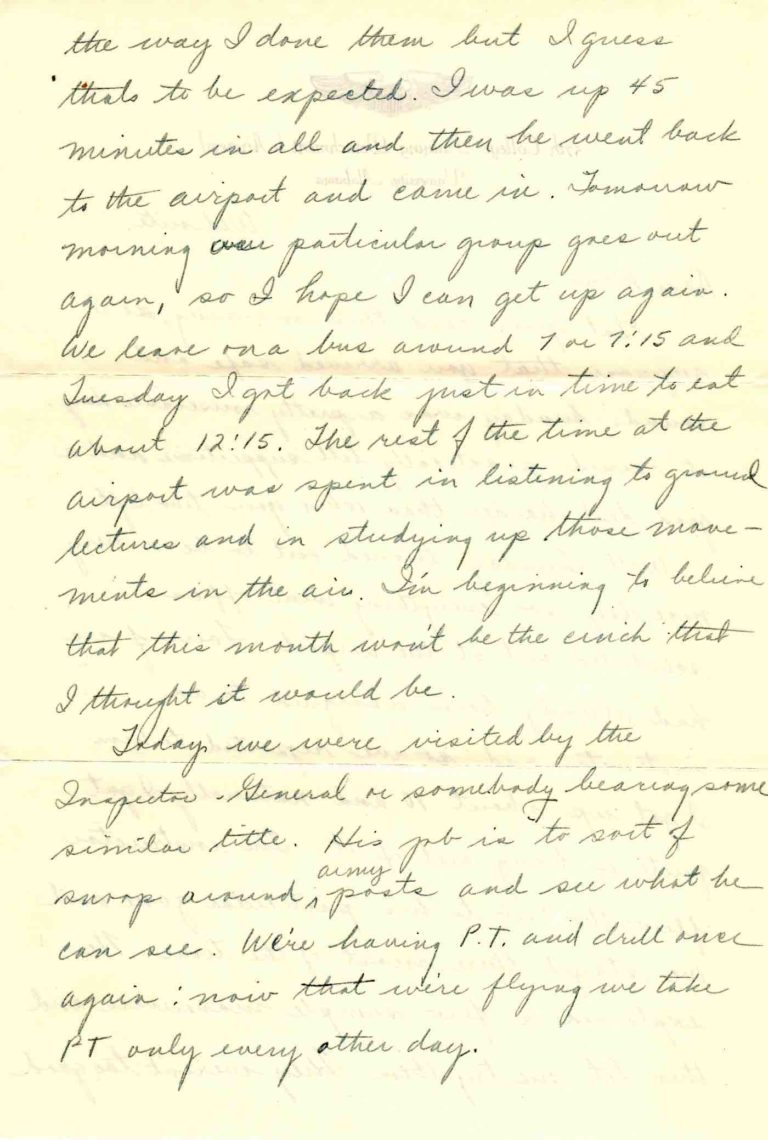 the way I done them but I guess
thats to be expected. I was up 45
minutes in all and then he went back
to the airport and came in. Tomorrow
morning our particular group goes out
again, so I hope I can get up again.
We leave on a bus around 7 or 7:15 and
Tuesday I got back just in time to eat
about 12:15. The rest of the time at the
airport was spent in listening to ground
lectures and in studying up those move-
ments in the air. I'm beginning to believe
that this month won't be the cinch that
I thought it would be.
Today we were visited by the
Inspector-General or somebody bearing some
similar title. His job is to sort of
snoop around army posts and see what he
can see. We're having P.T. and drill once
again: now that we're flying we take
PT only every other day.